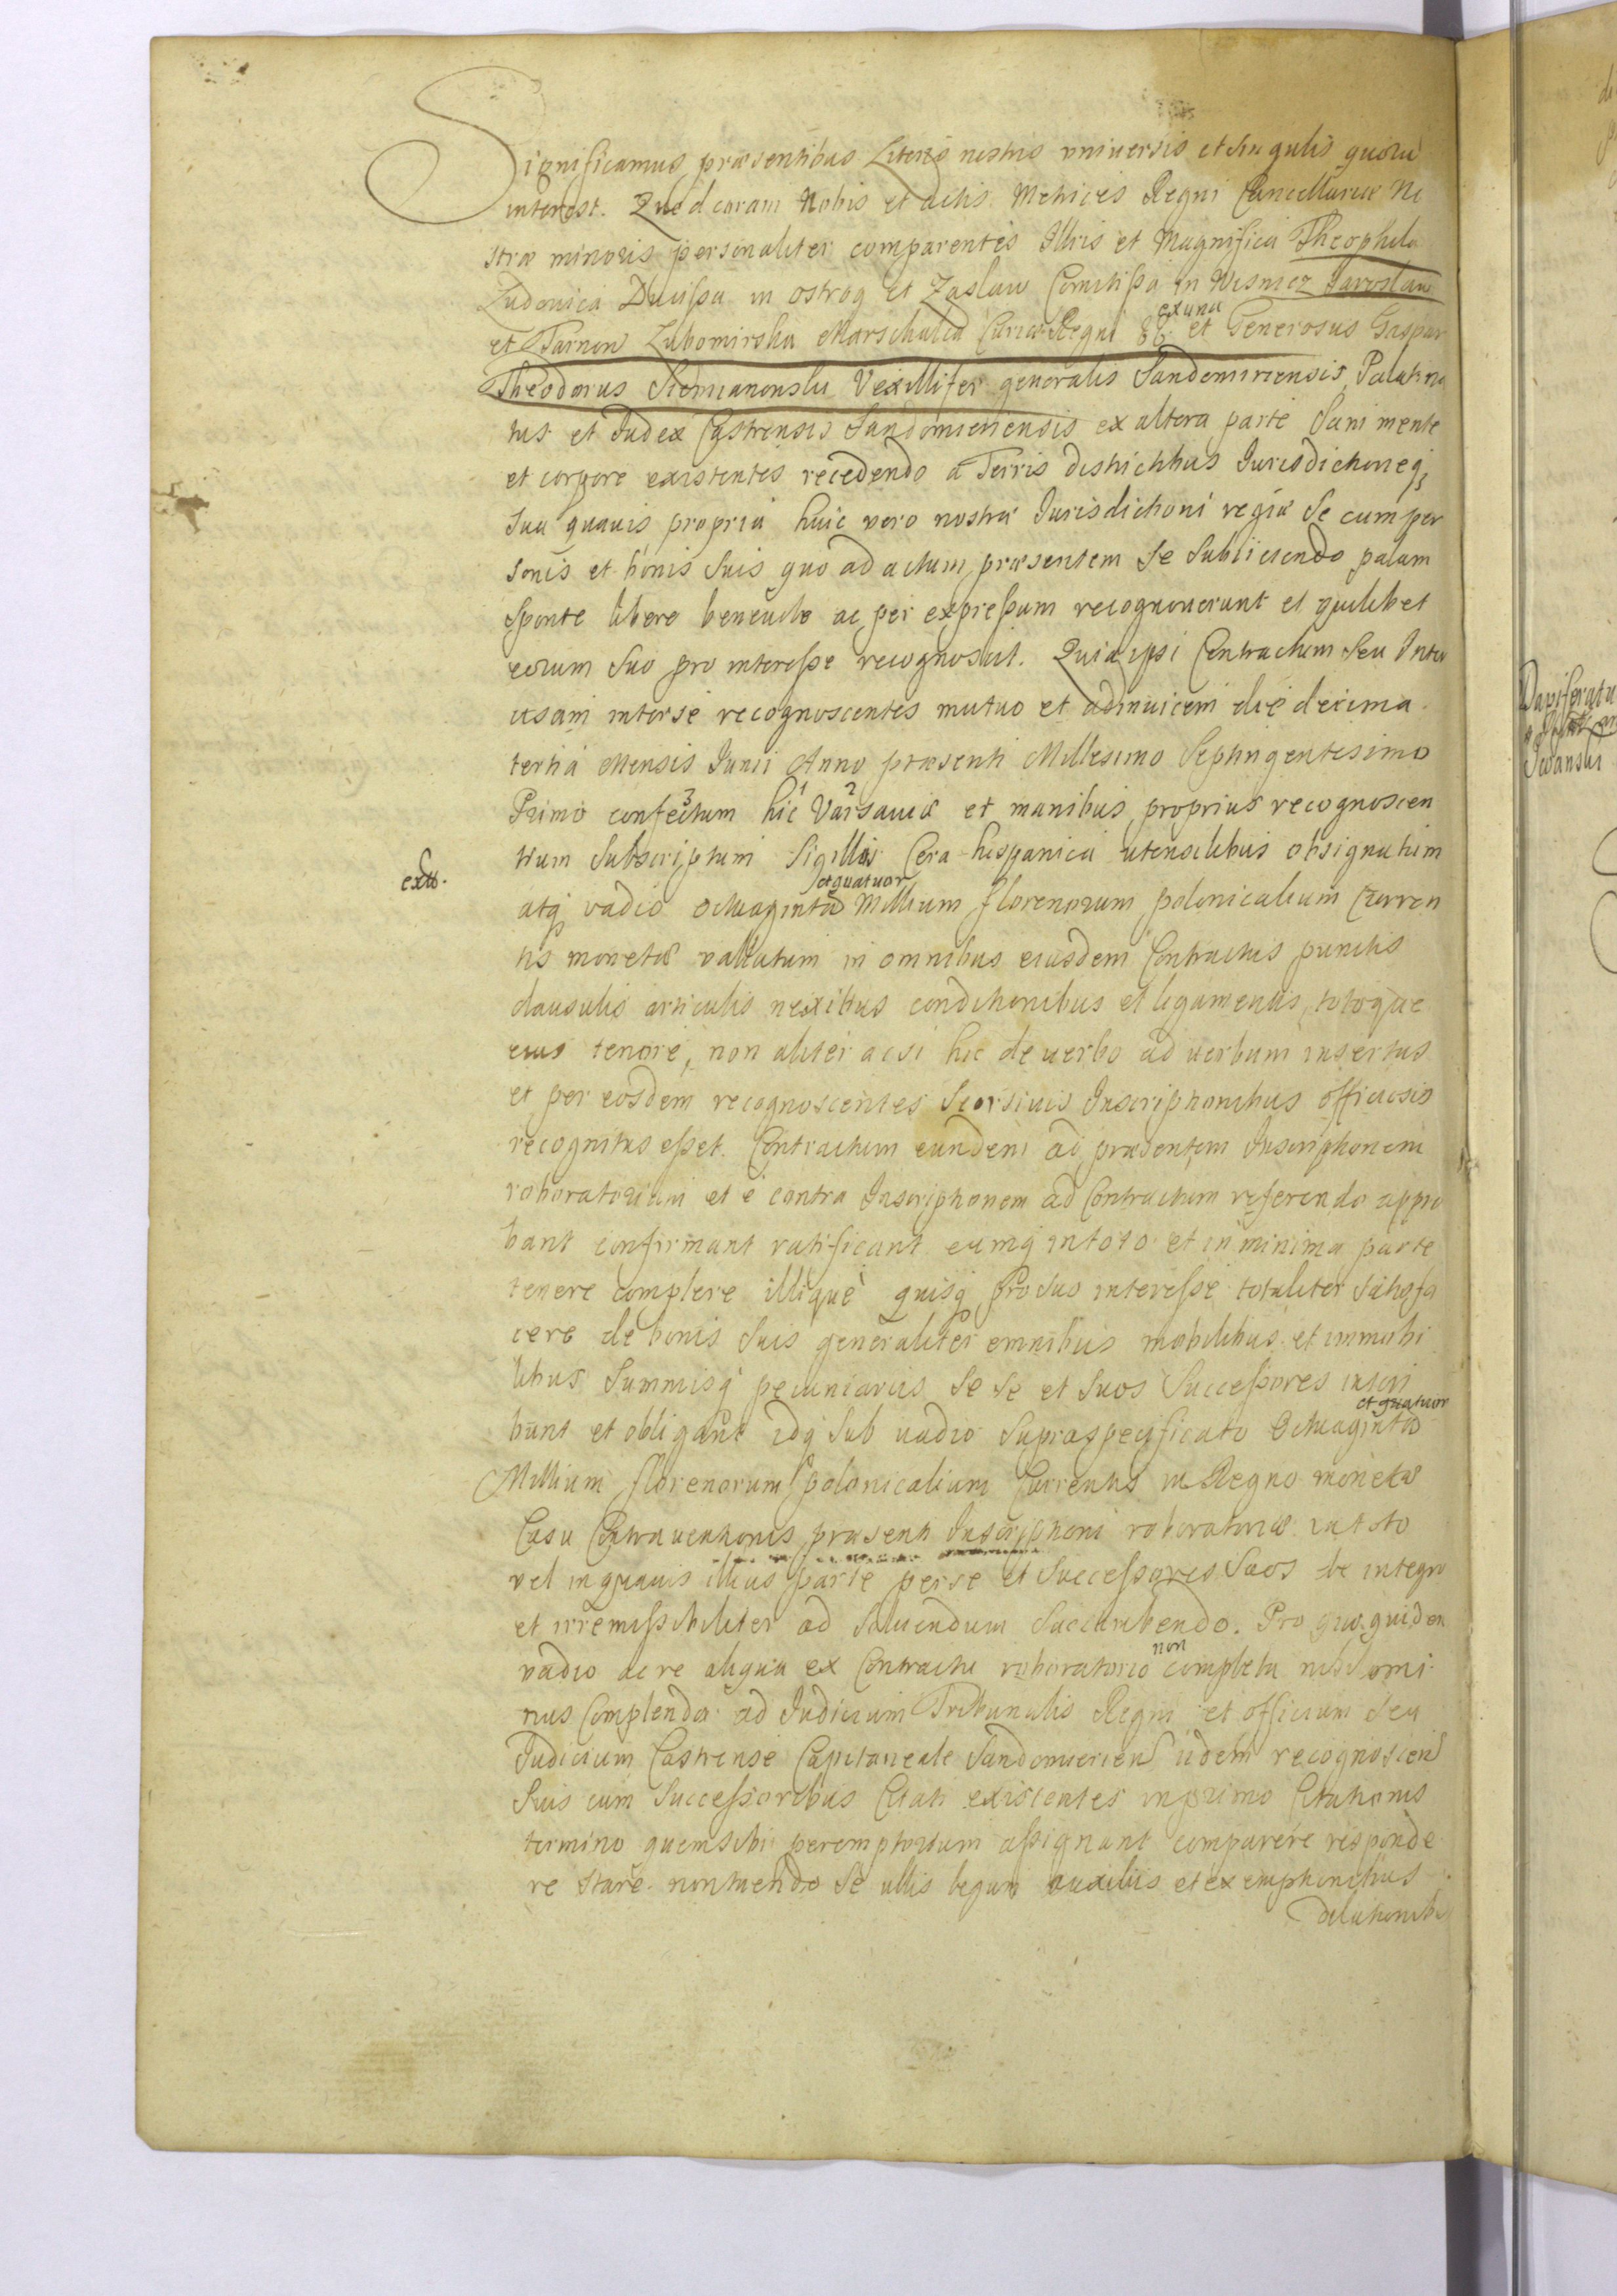 Significamus præsentibus Literis nostris universis et singulis quorũ
interest. Quod coram Nobis et Actis Metrices Regni Cancellariæ No
stræ minoris personaliter comparentes Illris et Magnifica Theophila
Ludovica Ducissa in ostrog et Zaslaw Comitissa in Wisnicz Jaroslaw
ex una
et Tarnow Lubomirska Marschalca Curiæ Regni &c. et Generosus Gaspar
Theodorus Siemianonski Vexillifer generalis Sandomiriensis Palatina
tus et Judex Castrensis Sandomiriensis ex altera parte Sani mente
et corpore existentes recedendo a Terris districtibus Jurisdictioneq;
sua quavis propria huic vero nostræ Jurisdictioni regiæ se cum per
sonis et bonis suis quo ad actum præsentem se subiiciendo palam
sponte libere benevole ac per expressum recognoverunt et quilibet
eorum suo pro interesse recognoscit. Quia ipsi Contractum seu Inter
cisam inter se recognoscentes mutuo et adinvicem die decima
tertia Mensis Junii Anno præsenti Millesimo Septingentesimo
3 1 2
Primo confectum hic Varsaviæ et manibus proprius recognoscen
tium subscriptum Sigillis Cera hispanica utensilibus obsignatum
extr.
et quatuor
atq vadio octuaginta Millium florenorum polonicalium Curren
tis monetæ vallatum in omnibus eiusdem Contractus punctis
clausulis articulis nexibus conditionibus et ligamentis, totoque
eius tenore, non aliter ac si hic de verbo ad verbum insertus
et per eosdem recognoscentes Seorsivis Inscriptionibus officiosis
recognitus esset. Contractum eundem ad præsentem Inscriptionem
roboratoriam et e contra Inscriptionem ad Contractum referendo appro
bant confirmant ratificant eumq in toto et in minima parte
tenere complere illique quisq pro suo interesse totaliter satisfa
cere de bonis suis generaliter omnibus mobilibus et immobi
libus Summisq pecuniariis se se et suos Successores inscri
et quatuor
bunt et obligant idq sub vadio supraspecificato octuaginta
Millium florenorum polonicalium Currentis in Regno monetæ
Casu Contraventionis præsenti Inscriptioni roboratoriæ in toto
vel in quavis illius parte per se et Successores Suos de integro
et irremissibiliter ad solvendum succumbendo. Pro quo quidem
non
vadio ac re aliqua ex Contractu roboratorio completa nihilomi
nus Complenda ad Judicium Tribunalis Regni et officium seu
Judicium Castrense Capitaneale Sandomirien iidem recognoscen
suis cum Successoribus Citati existentes in primo Citationis
termino quem sibi peremptorium assignant comparere responde
re stare non tuendo se ullis legum auxiliis et exemptionibus
dilationib
Dapiferatu